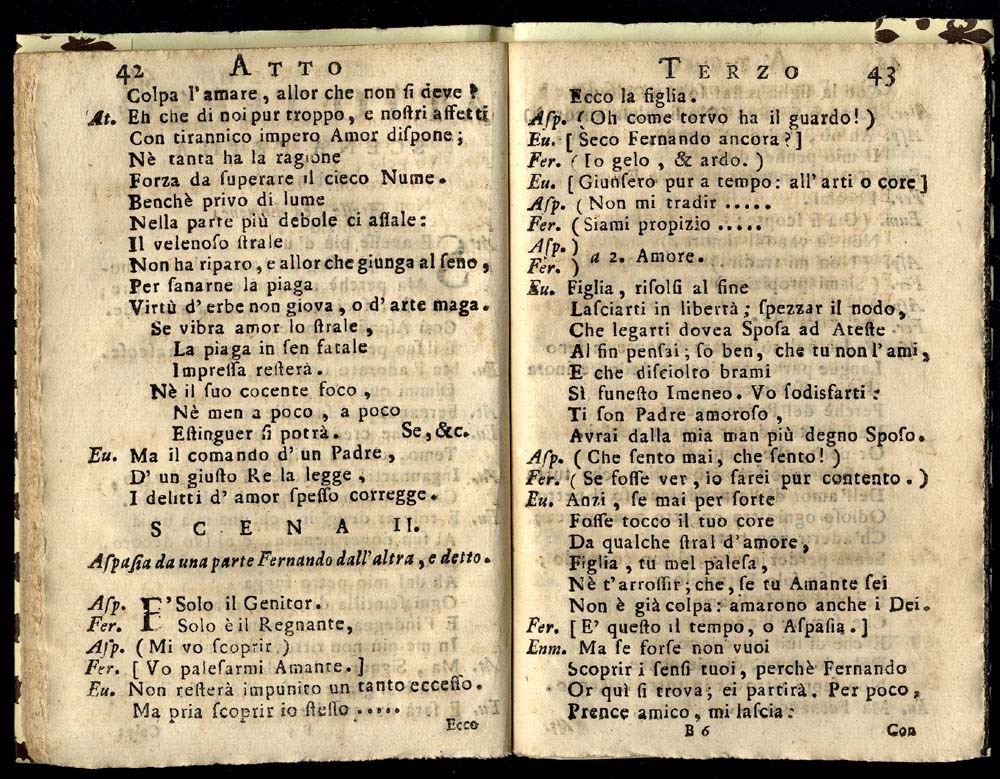 42 ATTO
Colpa l'amare, allor che non si deve?
At. Eh che di noi pur troppo, e nostri affetti
Con tirannico impero Amor dispone;
Nè tanta ha la ragione
Forza da superare il cieco Nume.
Benchè privo di lume
Nella parte più debole ci assale:
Il velenoso strale
Non ha riparo, e allor che giunga al seno,
Per sanarne la piaga
Virtù d'erbe non giova, o d'arte maga.
Se vibra amor lo strale,
La piaga in sen fatale
Impressa resterà.
Nè il suo cocente foco,
Nè men a poco, a poco
Estinguer si potrà. Se, &c.
Eu. Ma il comando d'un Padre,
D'un giusto Re la legge,
I delitti d'amor spesso corregge.
SCENA II.
Aspasia da una parte Fernando dall'altra, e detto.
Asp. E' Solo il Genitor.
Fer. Solo è il Regnante,
Asp. (Mi vo scoprir)
Fer. [Vo palesarmi Amante.]
Eu. Non resterà impunito un tanto eccesso.
Ma pria scoprir io stesso .....
Ecco
TERZO 43
Ecco la figlia.
Asp. (Oh come torvo ha il guardo!)
Eu. [Seco Fernando ancora?]
Fer. (Io gelo, & ardo.)
Eu. [Giunsero pur a tempo: all'arti o core]
Asp. (Non mi tradir .....
Fer. (Siami propizio .....
Asp. )
a 2. Amore.
Fer. )
Eu. Figlia, risolsi al fine
Lasciarti in libertà; spezzar il nodo,
Che legarti dovea Sposa ad Ateste
Al fin pensai; so ben, che tu non l'ami,
E che disciolto brami
Sì funesto Imeneo. Vo sodisfarti:
Ti son Padre amoroso,
Avrai dalla mia man più degno Sposo.
Asp. (Che sento mai, che sento!)
Fer. (Se fosse ver, io sarei pur contento.)
Eu. Anzi, se mai per sorte
Fosse tocco il tuo core
Da qualche stral d'amore,
Figlia, tu mel palesa,
Nè t'arrossir; che, se tu Amante sei
Non è già colpa: amarono anche i Dei.
Fer. [E' questo il tempo, o Aspasia.]
Enm. Ma se forse non vuoi
Scoprir i sensi tuoi, perchè Fernando
Or quì si trova; ei partirà. Per poco,
Prence amico, mi lascia:
B 6 Con